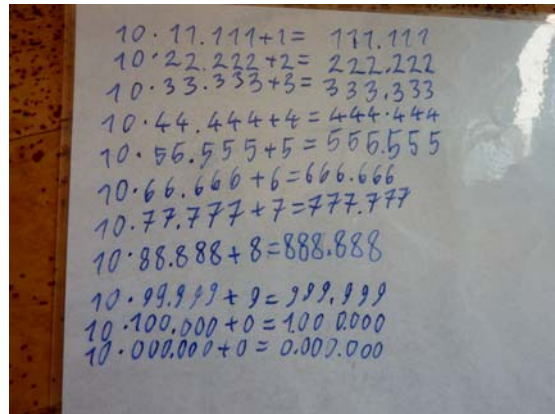 10·11.111+1= 111.111
10·22.222+2= 222.222
10·33.333+3= 333.333
10·44.444+4=444.444
10·55.555+5=555.555
10·66.666+6=666.666
10·77.777+7=777.777
10·88.888+8=888.888
10·99.999+9=999.999
10·100.000+0=1.000.000
10·000.000+0= 0.000.000